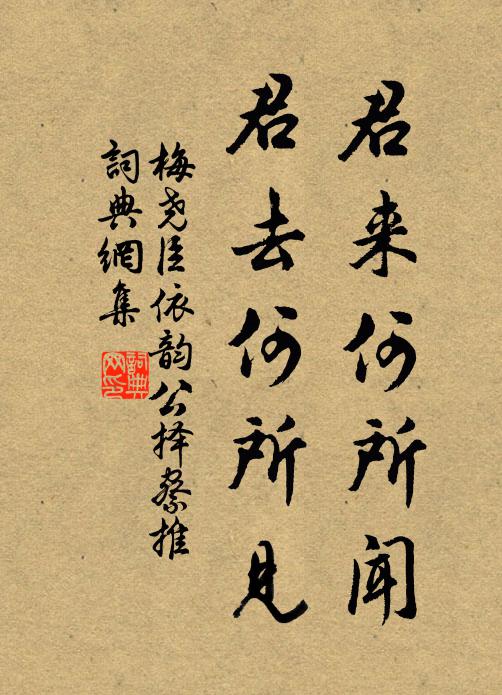 君来何所闻
君去何所见
梅尧臣依韵公择察推
詞典網集
詞典网印